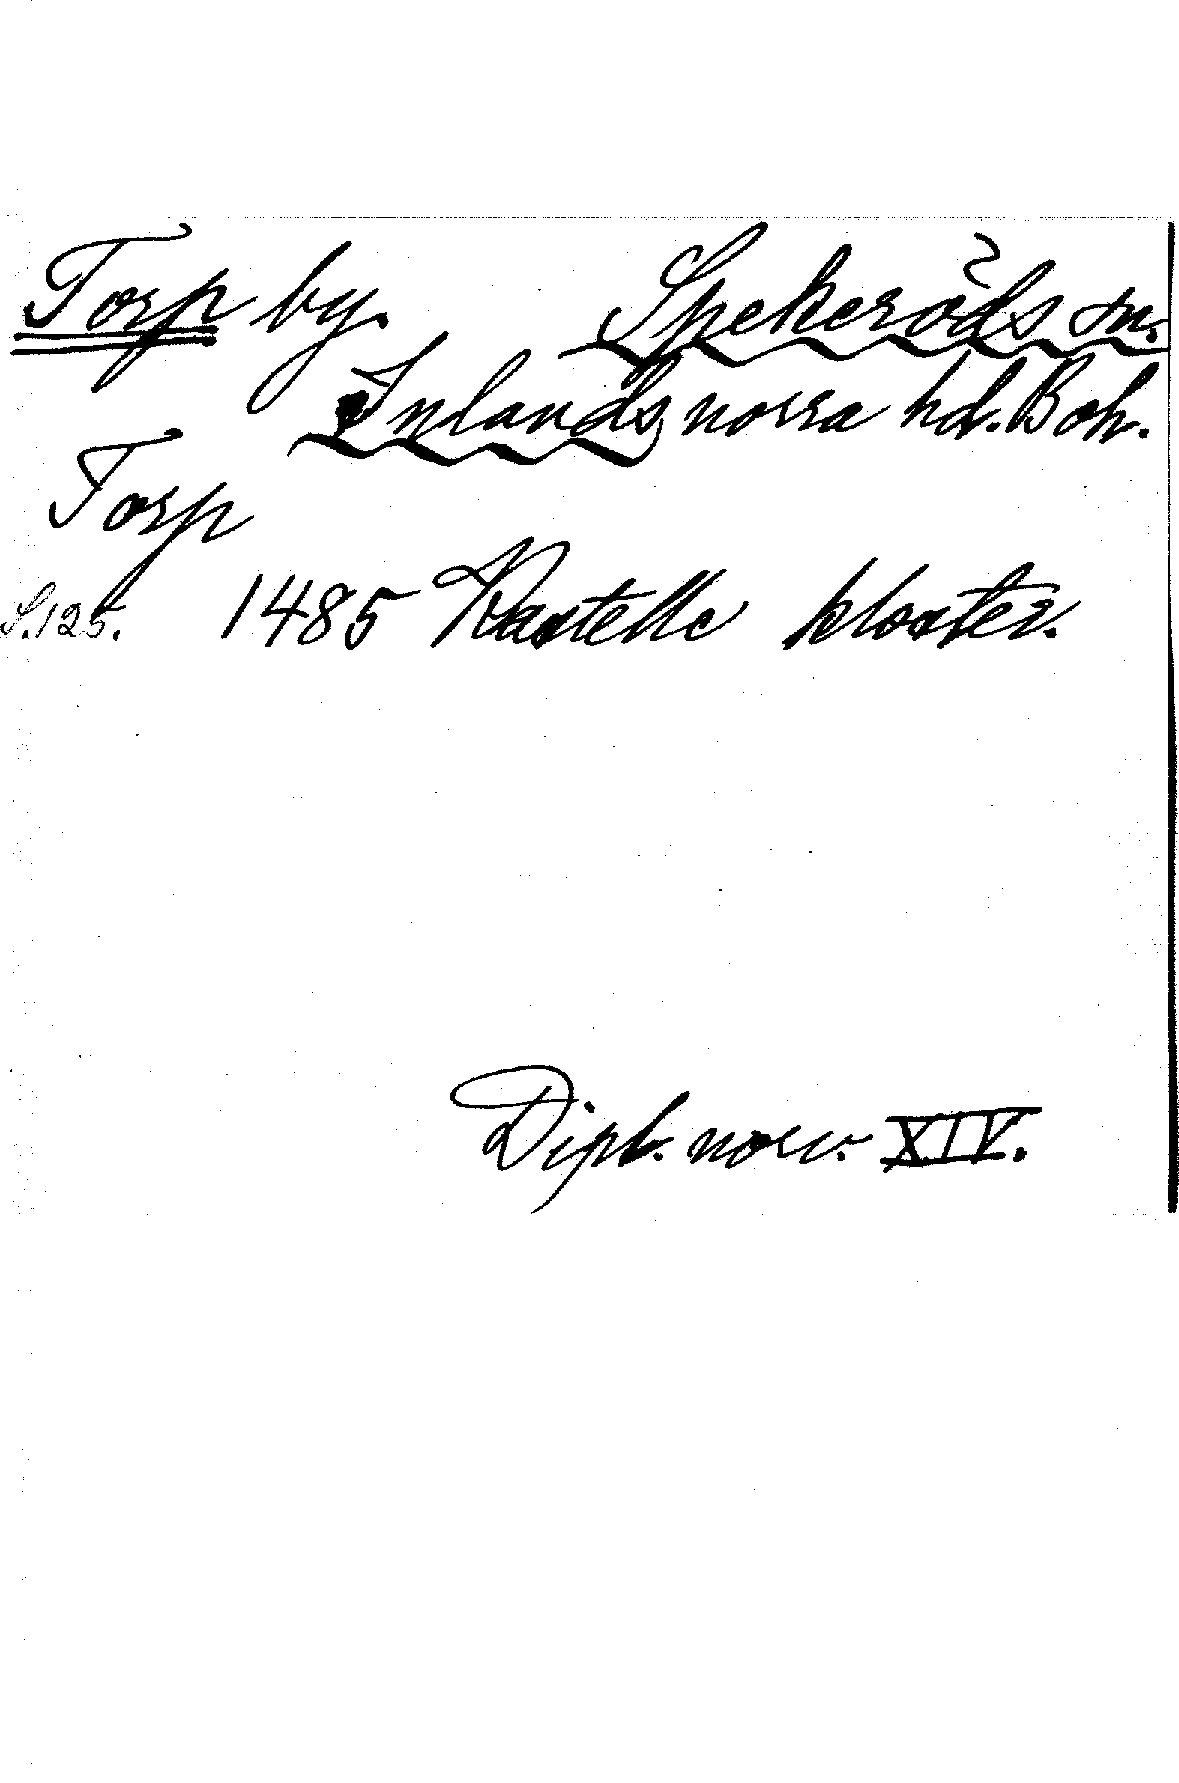 Torp by. Spekeröds sn.
Inlands norra hd. Boh.
Torp
S.125. 1485 Kastelle kloster.
Dipl. norv. XIV.